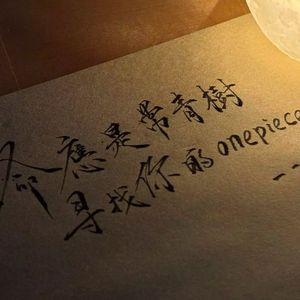 命應是常青樹
寻找你的onepiece